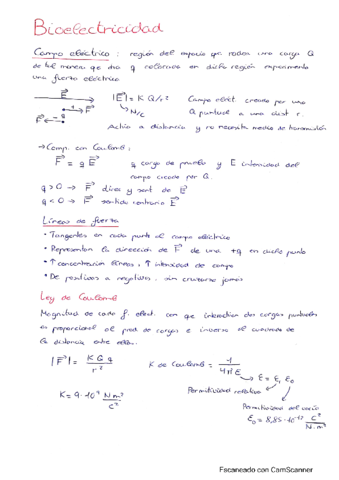 Bioelectricidad
Campo eléctrico : región del espacio que rodea una carga Q
de tal manera que otra q colocada en dicha región experimenta
una fuerza eléctrica
E→ |E→| = K Q/r² Campo eléct. creado por una
+q → F→ ↳ N/C Q puntual a una dist r.
F→ ← -q Actúa a distancia y no necesita medio de transmisión
→ Comp. con Coulomb :
F→ = q E→ q carga de prueba y E intensidad del
campo creado por Q.
q > 0 → F→ direc y sent de E→
q < 0 → F→ sentido contrario E→
Líneas de fuerza
• Tangentes en cada punto al campo eléctrico
• Representan la dirección de F→ de una +q en dicho punto
• ↑ concentración líneas, ↑ intensidad de campo
• De positivas a negativas, sin cruzarse jamás
Ley de Coulomb
Magnitud de cada f. eléct. con que interactúan dos cargas puntuales
es proporcional al prod. de cargas e inversa al cuadrado de
la distancia entre ellas.
|F→| = K Q q / r² K de Coulomb = 1 / 4πε → ε = εr ε0
Permitividad relativa
K = 9 · 10⁹ N m² / C² Permitividad del vacío
ε0 = 8,85 · 10⁻¹² C² / N · m²
Escaneado con CamScanner